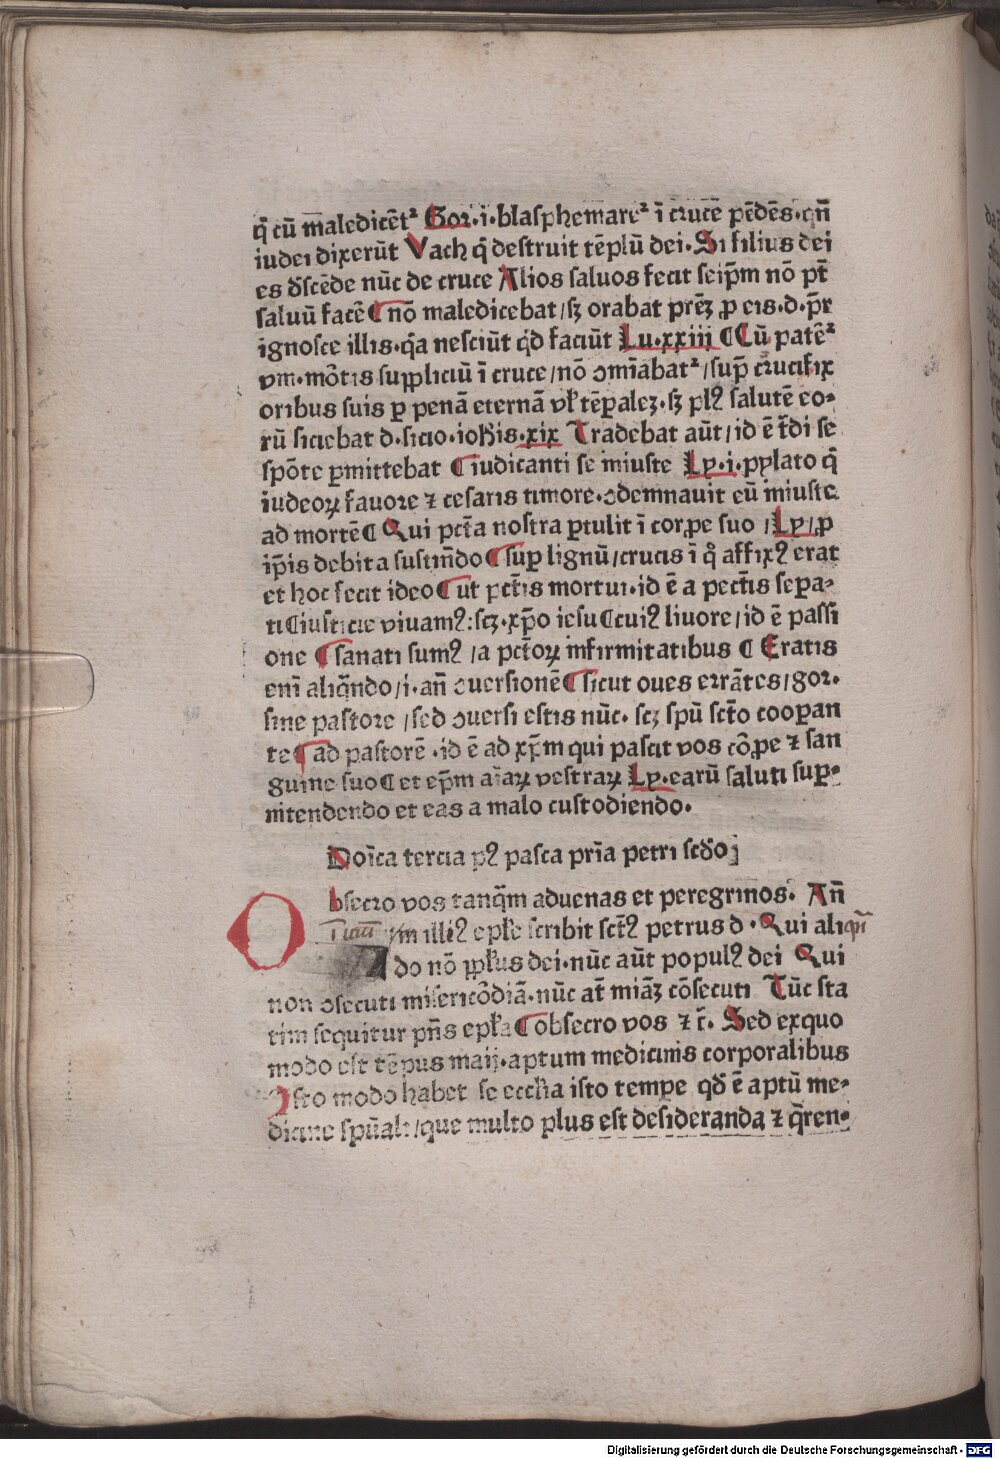 q̄ cū maledicēt² Gor·i·blasphemaret² ī cruce pēdēs·qn̄
iudei dixerūt Vach q̄ destruit tēplū dei·Si filius dei
es d̄scēde nūc de cruce Alios saluos fecit seip̄m nō pt̄
saluū facē ¶ nō maledicebat /sꝫ orabat prēꝫ ꝓ eis·d·pr̄
ignosce illis·q̄a nesciūt qd̄ faciūt Lu·xxiii ¶ Cū patē²
vm·mōtis suppliciū ī cruce /nō ↄmīabat² /sup̄ crucifix
oribus suis ꝑ penā eternā vl̄ tēꝑalēꝫ·sꝫ plꝰ salutē eo-
rū siciebat d·sicio·ioħis·xix Tradebat aūt /id ē t̄di se
spōte ꝑmittebat ¶ iudicanti se iniuste Ly·i·pylato q̄
iudeoꝝ fauore ⁊ cesaris timore·ↄdemnauit eū iniuste
ad mortē ¶ Qui pct̄a nostra ꝑtulit ī corꝑe suo /Ly /ꝓ
ip̄is debita sustin̄do ¶ suꝑ lignū /crucis ī q° affixꝰ erat
et hoc fecit ideo ¶ ut pct̄is mortui·id ē a pect̄is seꝑa-
ti ¶ iusticie viuamꝰ:scꝫ·xp̄o iesu ¶ cuiꝰ liuore /id ē passi
one ¶ sanati sumꝰ /a pct̄oꝝ infirmitatibus ¶ Eratis
eni aliqn̄do /i·an̄ ↄuersionē ¶ sicut oues errātes /gor·
sine pastore /sed ↄuersi estis nūc· scꝫ spū sct̄o cooꝑan
te ¶ ad pastorē ·id ē ad xp̄m qui pascit vos cōꝑe ⁊ san
guine suo ¶ et ep̄m aīaꝝ vestraꝝ Ly·earū saluti suꝑ-
intendendo et eas a malo custodiendo·
Doīca tercia pꝰ pasca prīa petri scd̄o
O bsecro vos tanq̄m aduenas et peregrinos· An̄
ym illiꝰ epl̄e scribit sct̄ꝰ petrus d · Qui aliqn̄
do nō ppl̄us dei·nūc aūt populꝰ dei Qui
non ↄsecuti misericōdiā·nūc at̄ miāꝫ cōsecuti Tūc sta
tim sequitur pn̄s epl̄a ¶ obsecro vos ⁊ c̄· Sed exquo
modo est tēpus maij·aptum medicinis corporalibus
Isto modo habet se eccl̄ia isto tempe qd̄ ē aptū me-
dicine spūali /que multo plus est desideranda ⁊ q̄ren-
Digitalisierung gefördert durch die Deutsche Forschungsgemeinschaft - DFG